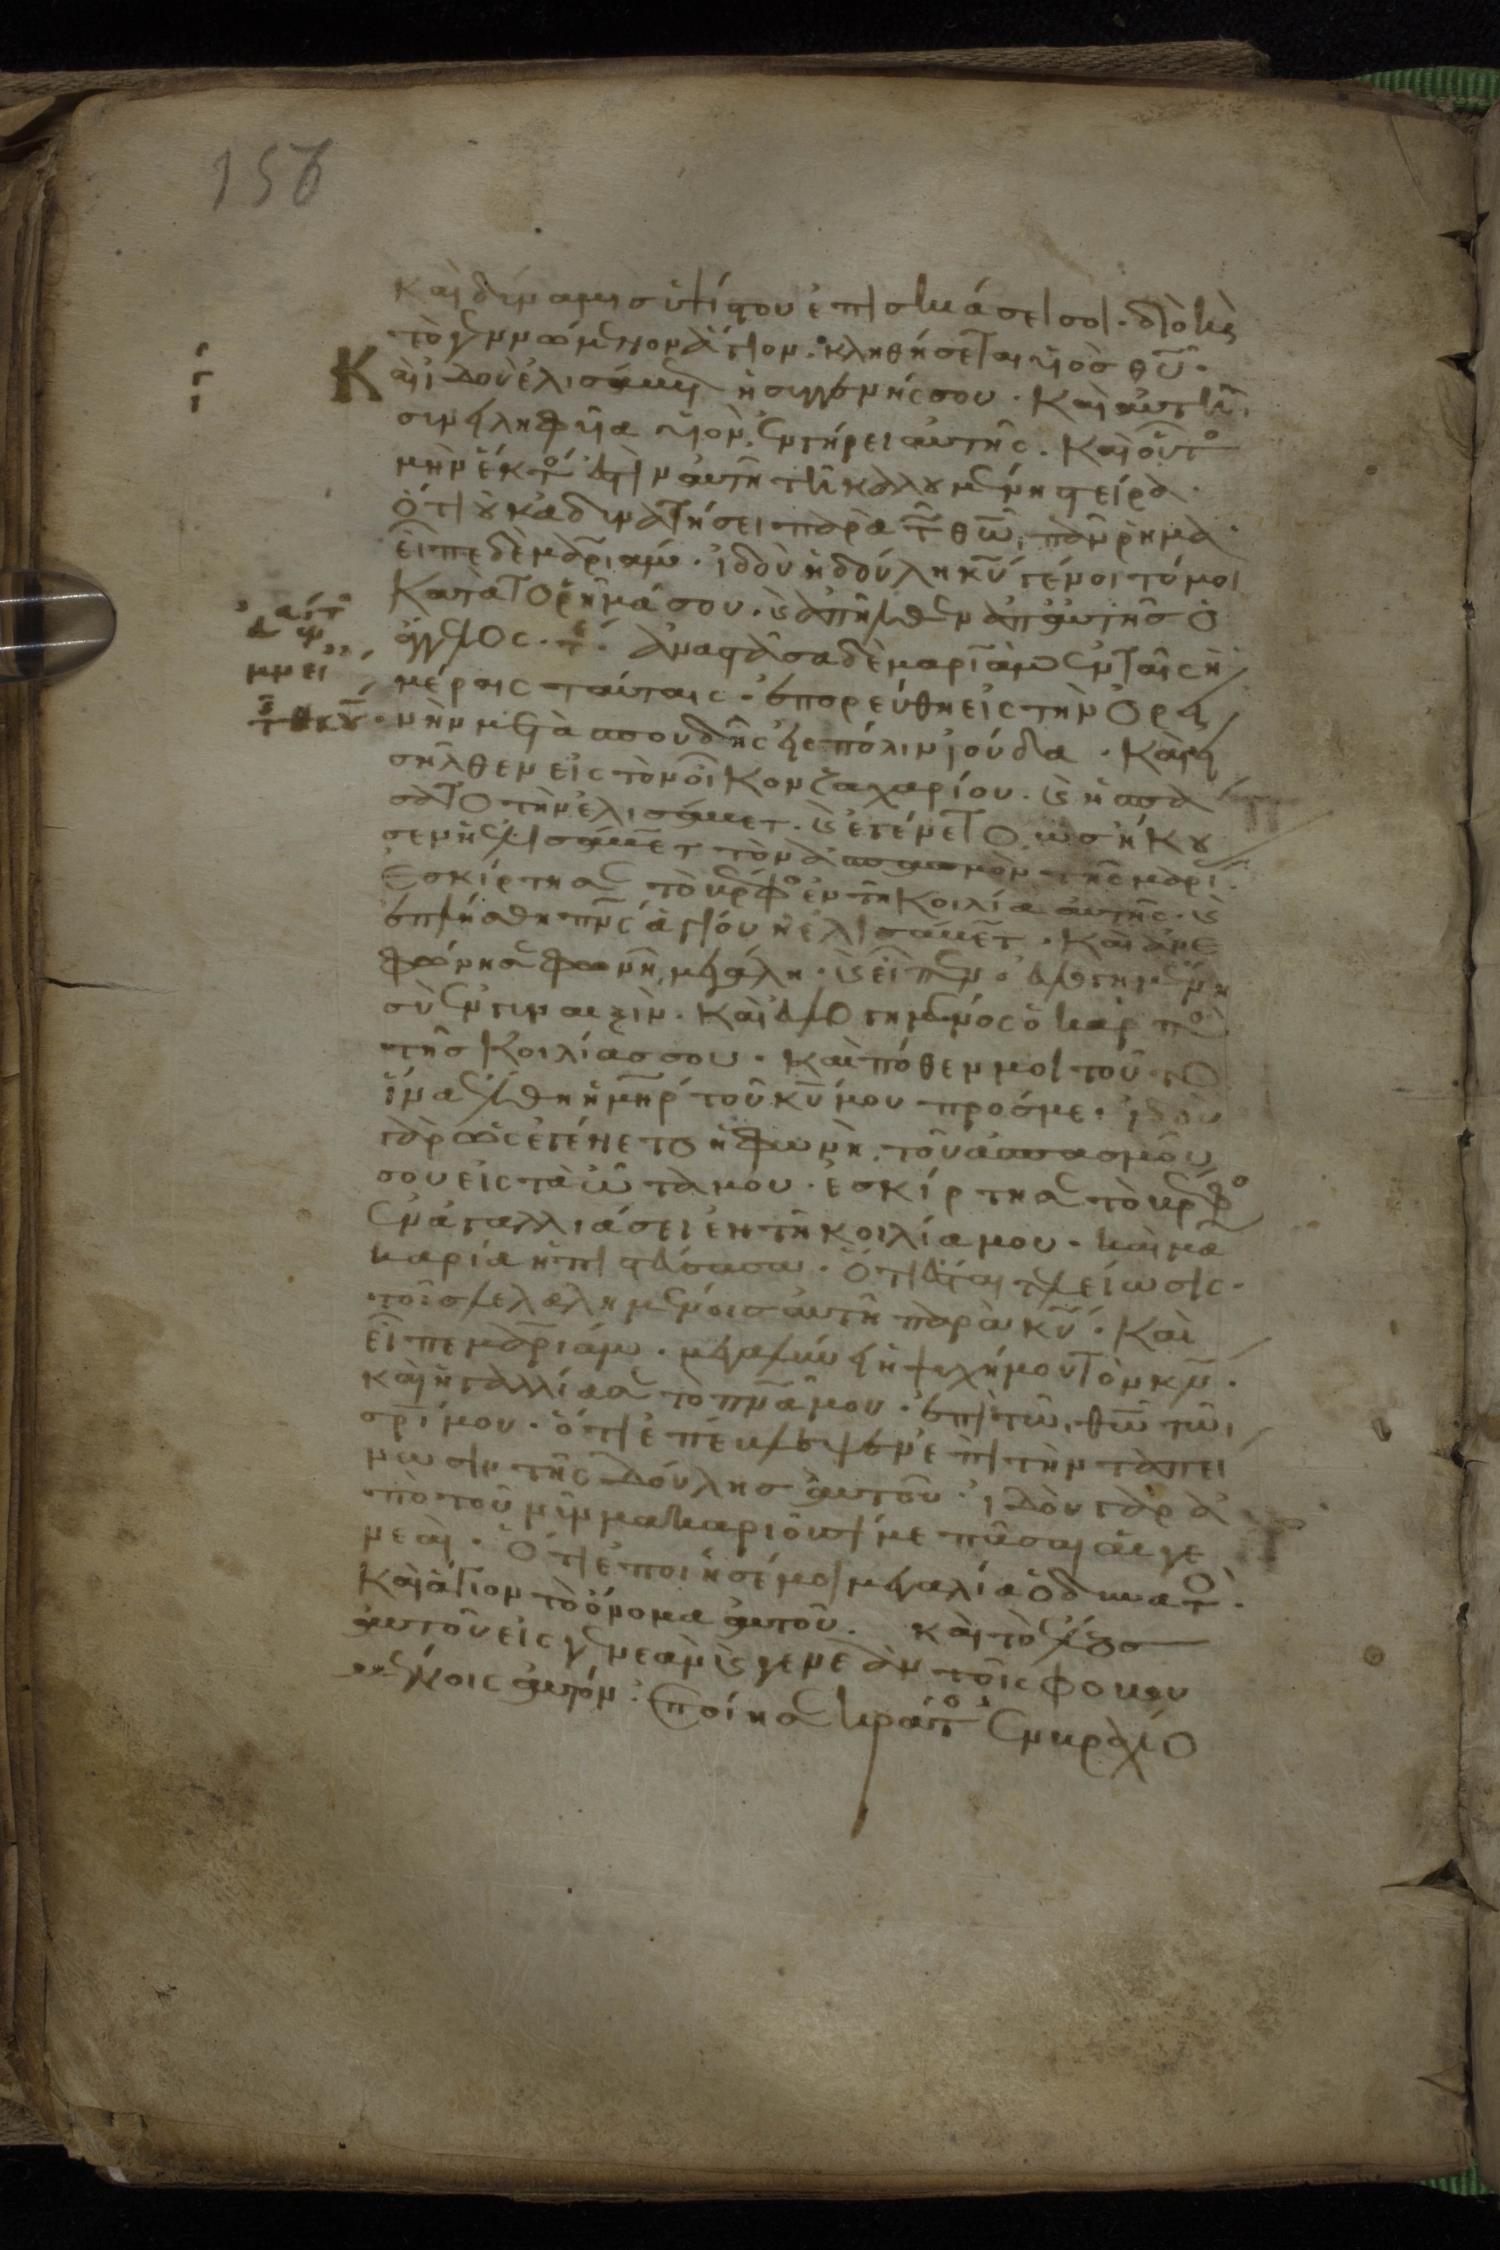 156
καὶ δύναμισ ὑψίστου ἐπισκιάσει σοι· διὸ καὶ
τὸ γεννώμενον ἅγιον· κληθήσεται υἱὸσ θῡ·
Καὶ ἰδοὺ ἐλισάβετ ἡ συγγενής σου· καὶ αὐτὴ
συνειληφυῖα υἱὸν ἐν γήρει αὐτῆς· καὶ οὗτο
μὴν ἕκτο ἐστὶν αὐτῆ τῆ καλουμένη στείρα·
ὅτι οὐκ ἀδυνατήσει παρὰ τῶ θῶ πᾶν ῥῆμα·
εἶπε δὲ μαριάμ· ἰδοὺ ἡ δούλη κῡ γένοιτό μοι
κατὰ τὸ ῥῆμά σου· καὶ ἀπῆλθεν ἀπ αὐτῆσ ὁ
ἄγγελος· τε· ἀναστᾶσα δὲ μαριὰμ ἐν ταῖς ἡ
μέραις ταύταις· ἐπορεύθη εἰς τὴν ὀρει
νὴν μετὰ σπουδῆς εἰς πόλιν ἰούδα· καὶ εἰ
σῆλθεν εἰς τὸν οἶκον ζαχαρίου· καὶ ἠσπά
σατο τὴν ἐλισάβετ· καὶ ἐγένετο ὡσ ἤκου
σεν ἡ ἐλισάβετ τὸν ἀσπασμὸν τῆς μαρί
ἐσκίρτησε τὸ βρέφο ἐν τῆ κοιλία αὐτῆς· καὶ
ἐπλήσθη πνς ἁγίου ἡ ἐλισάβετ· καὶ ἀνε
φώνησε φωνῆ μεγάλη· καὶ εἶπεν· εὐλογημένη
σὺ ἐν γυναιξὶν· καὶ εὐλογημένος ὁ καρπὸ
τῆσ κοιλίασ σου· καὶ πόθεν μοι τοῦτο
ἵνα ἔλθη ἡ μηρ τοῦ κῡ μου προσ με· ἰδοὺ
γὰρ ὡς ἐγένετο ἡ φωνὴ τοῦ ἀσπασμοῦ
σου εἰς τὰ ὦτα μου· ἐσκίρτησε τὸ βρέφο
ἐν ἀγαλλιάσει ἐν τῆ κοιλία μου· καὶ μα
καρία ἡ πιστεύσασα· ὅτι ἔσται τελείωσις
τοῖσ λελαλημένοισ αὐτῆ παρὰ κῡ· Καὶ
εἶπε μαριάμ· μεγαλύνει ἡ ψυχή μου τὸν κν·
καὶ ἠγαλλίασε τὸ πνα μου· ἐπὶ τῶ θῶ τῶ
σρί μου· ὅτι ἐπέβλεψεν ἐπὶ τὴν ταπεί
νωσιν τῆς δούλησ αὐτοῦ· ἰδοὺ γὰρ ἀ
πὸ τοῦ νῦν μακαριοῦσί με πᾶσαι αἱ γε
νεαί· ὅτι ἐποίησέ μοι μεγαλία ὁ δυνατὸ·
καὶ ἅγιον τὸ ὄνομα αὐτοῦ· καὶ τὸ ἔλεοσ
αὐτοῦ εἰς γενεὰν καὶ γενεὰν τοῖς φοβου
μένοις αὐτόν· ἐποίησε κράτο ἐν βραχίο